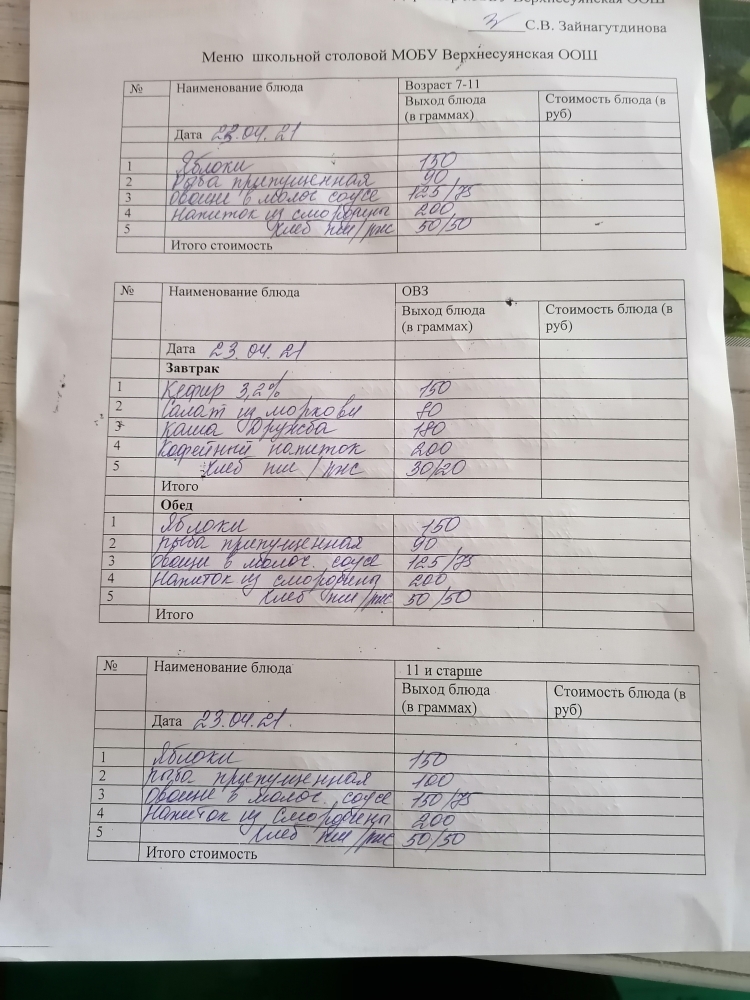 МОБУ Верхнесуянская ООШ
С.В. Зайнагутдинова
Меню школьной столовой МОБУ Верхнесуянская ООШ
№ Наименование блюда Возраст 7-11
Выход блюда (в граммах) Стоимость блюда (в руб)
Дата 23.04.21
1 Яблоки 150
2 Рыба припущенная 90
3 Овощи в молоч соусе 125/75
4 Напиток из смородины 200
5 Хлеб пш/рж 50/50
Итого стоимость
№ Наименование блюда ОВЗ
Выход блюда (в граммах) Стоимость блюда (в руб)
Дата 23.04.21
Завтрак
1 Кефир 3,2% 150
2 Салат из моркови 80
3 Каша Дружба 180
4 Кофейный напиток 200
5 Хлеб пш/ржс 30/20
Итого
Обед
1 Яблоки 150
2 Рыба припущенная 90
3 Овощи в молоч. соусе 125/75
4 Напиток из смородины 200
5 Хлеб пш/ржс 50/50
Итого
№ Наименование блюда 11 и старше
Выход блюда (в граммах) Стоимость блюда (в руб)
Дата 23.04.21.
1 Яблоки 150
2 Рыба припущенная 100
3 Овощи в молоч. соусе 150/75
4 Напиток из смородины 200
5 Хлеб пш/ржс 50/50
Итого стоимость